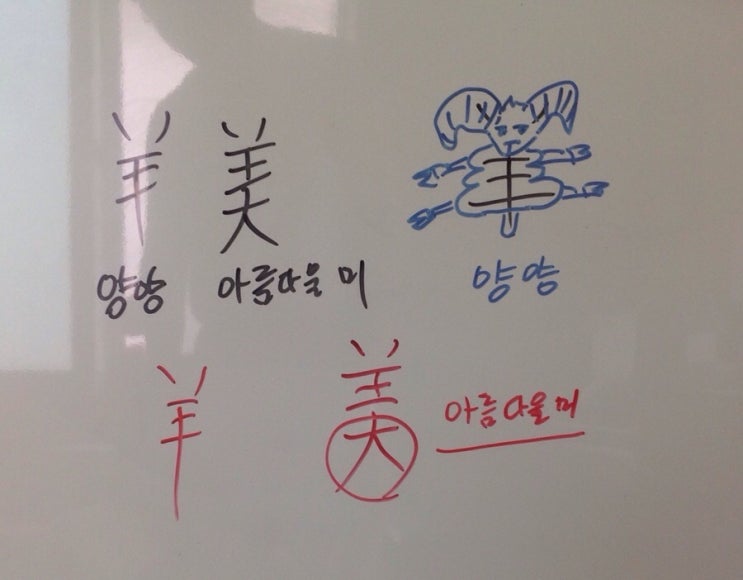 羊 美
양양 아름다울 미
羊
양양
羊 美 아름다울 미